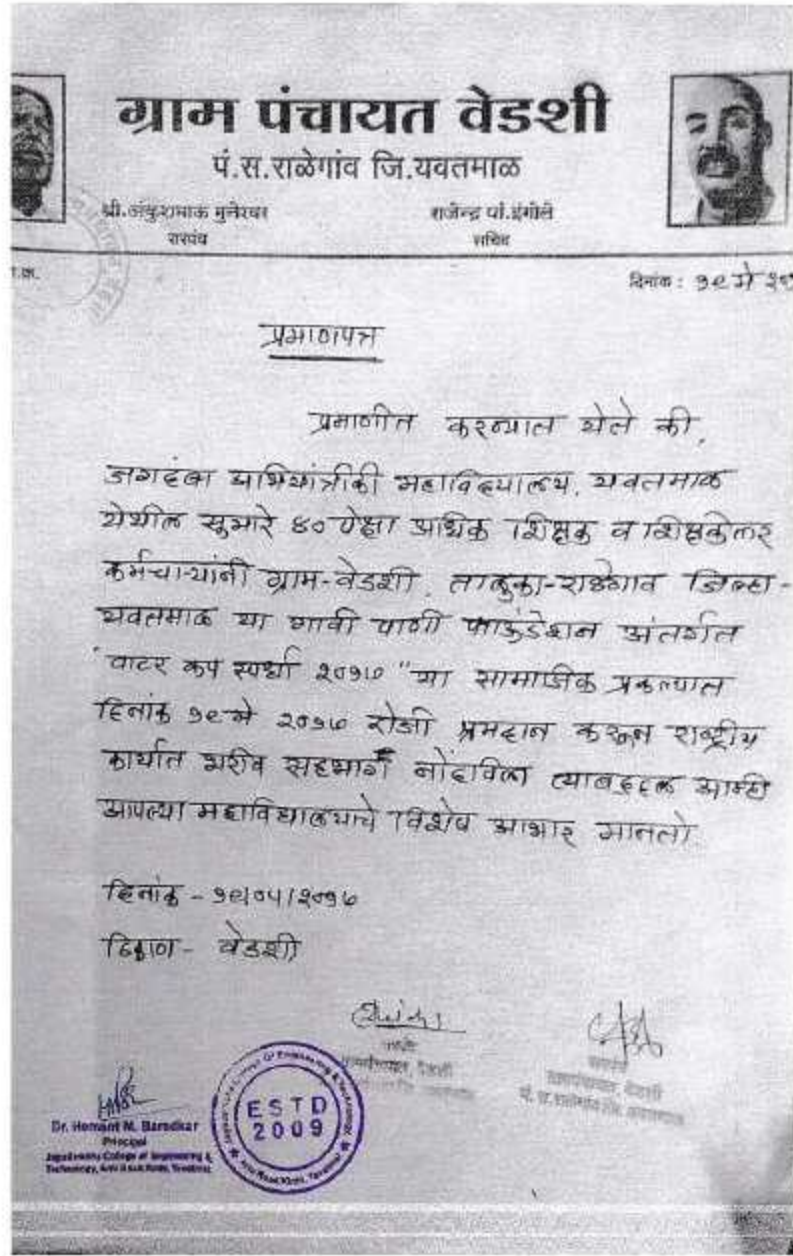 ग्राम पंचायत वेडशी
पं.स.राळेगांव जि.यवतमाळ
श्री.अंकुशभाऊ मुनेश्वर
राजेन्द्र पां.इंगोले
सरपंच
सचिव
दिनांक : १९ मे २०
प्रमाणपत्र
प्रमाणीत करण्यात येते की,
जगदंबा अभियांत्रीकी महाविद्यालय, यवतमाळ
येथील सुमारे ४० पेक्षा अधिक शिक्षक व शिक्षकेतर
कर्मचाऱ्यांनी ग्राम-वेडशी, तालुका-राळेगाव जिल्हा-
यवतमाळ या गावी पाणी फाऊंडेशन अंतर्गत
"वाटर कप स्पर्धा २०१७" या सामाजिक प्रकल्पात
दिनांक १९ मे २०१७ रोजी श्रमदान करून राष्ट्रीय
कार्यात भरीव सहभाग नोंदविला त्याबद्दल आम्ही
आपल्या महाविद्यालयाचे विशेष आभार मानतो.
दिनांक - १९/०५/२०१७
ठिकाण - वेडशी
सरपंच
ग्रामपंचायत, वेडशी
Dr. Hemant M. Baradkar
Principal
Jagadambha College of Engineering &
Technology,
ESTD
2009